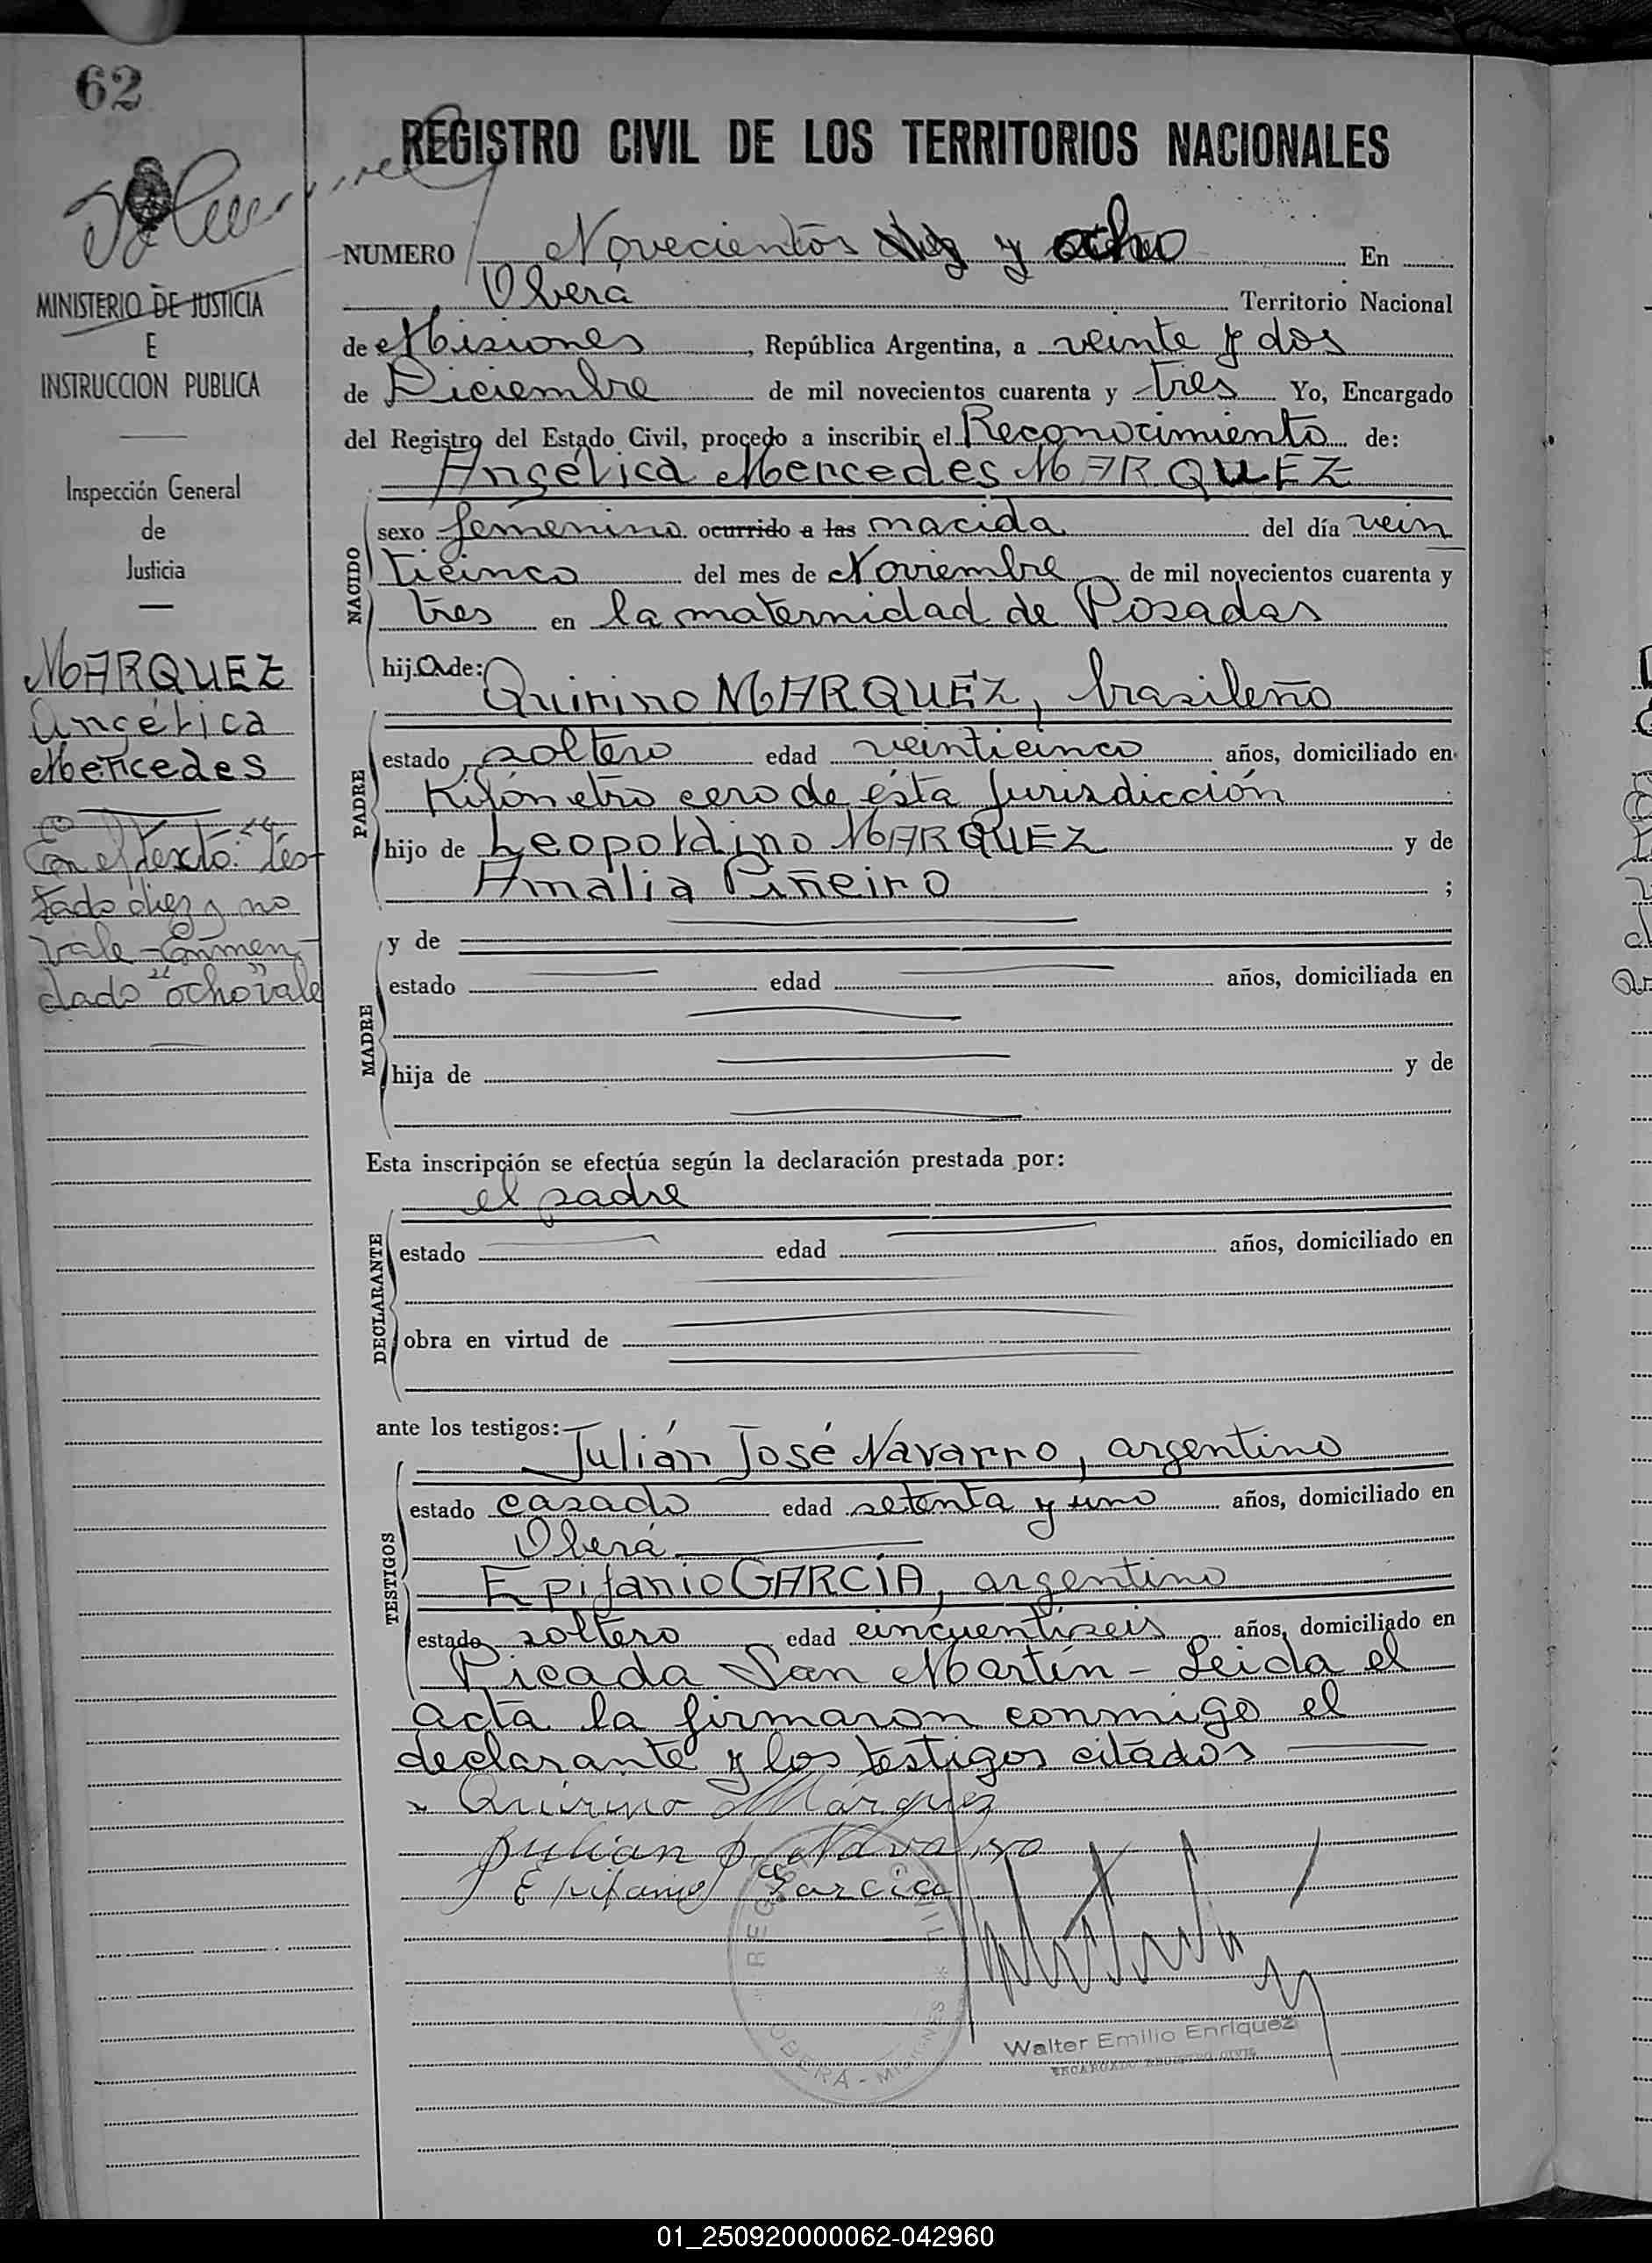 62
REGISTRO CIVIL DE LOS TERRITORIOS NACIONALES
NUMERO Novecientos diez y ocho En
Oberá Territorio Nacional
de Misiones, República Argentina, a veinte y dos
de Diciembre de mil novecientos cuarenta y tres Yo, Encargado
del Registro del Estado Civil, procedo a inscribir el Reconocimiento de:
Angélica Mercedes MARQUEZ
NACIDO
sexo femenino ocurrido a las nacida del día vein
ticinco del mes de Noviembre de mil novecientos cuarenta y
tres en la maternidad de Posadas
hija de:
Quirino MARQUEZ, brasileño
PADRE
estado soltero edad veinticinco años, domiciliado en
Kilómetro cero de ésta Jurisdicción
hijo de Leopoldino MARQUEZ y de
Amalia Piñeiro ;
MADRE
y de
estado edad años, domiciliada en
hija de y de
Esta inscripción se efectúa según la declaración prestada por:
el padre
DECLARANTE
estado edad años, domiciliado en
obra en virtud de
ante los testigos:
Julián José Navarro, argentino
TESTIGOS
estado casado edad setenta y uno años, domiciliado en
Oberá
Epifanio GARCÍA, argentino
estado soltero edad cincuentiseis años, domiciliado en
Picada San Martín - Leida el
acta la firmaron conmigo el
declarante y los testigos citados
Quirino Márquez
Julian J. Navarro
Epifanio Garcia
REGISTRO CIVIL
OBERÁ - MISIONES
Walter Emilio Enriquez
ENCARGADO REGISTRO CIVIL
MINISTERIO DE JUSTICIA
E
INSTRUCCION PUBLICA
Inspección General
de
Justicia
MARQUEZ
Angélica
Mercedes
En el texto: tes
tado diez y no
vale - Enmen
dado "ocho" vale
01_250920000062-042960